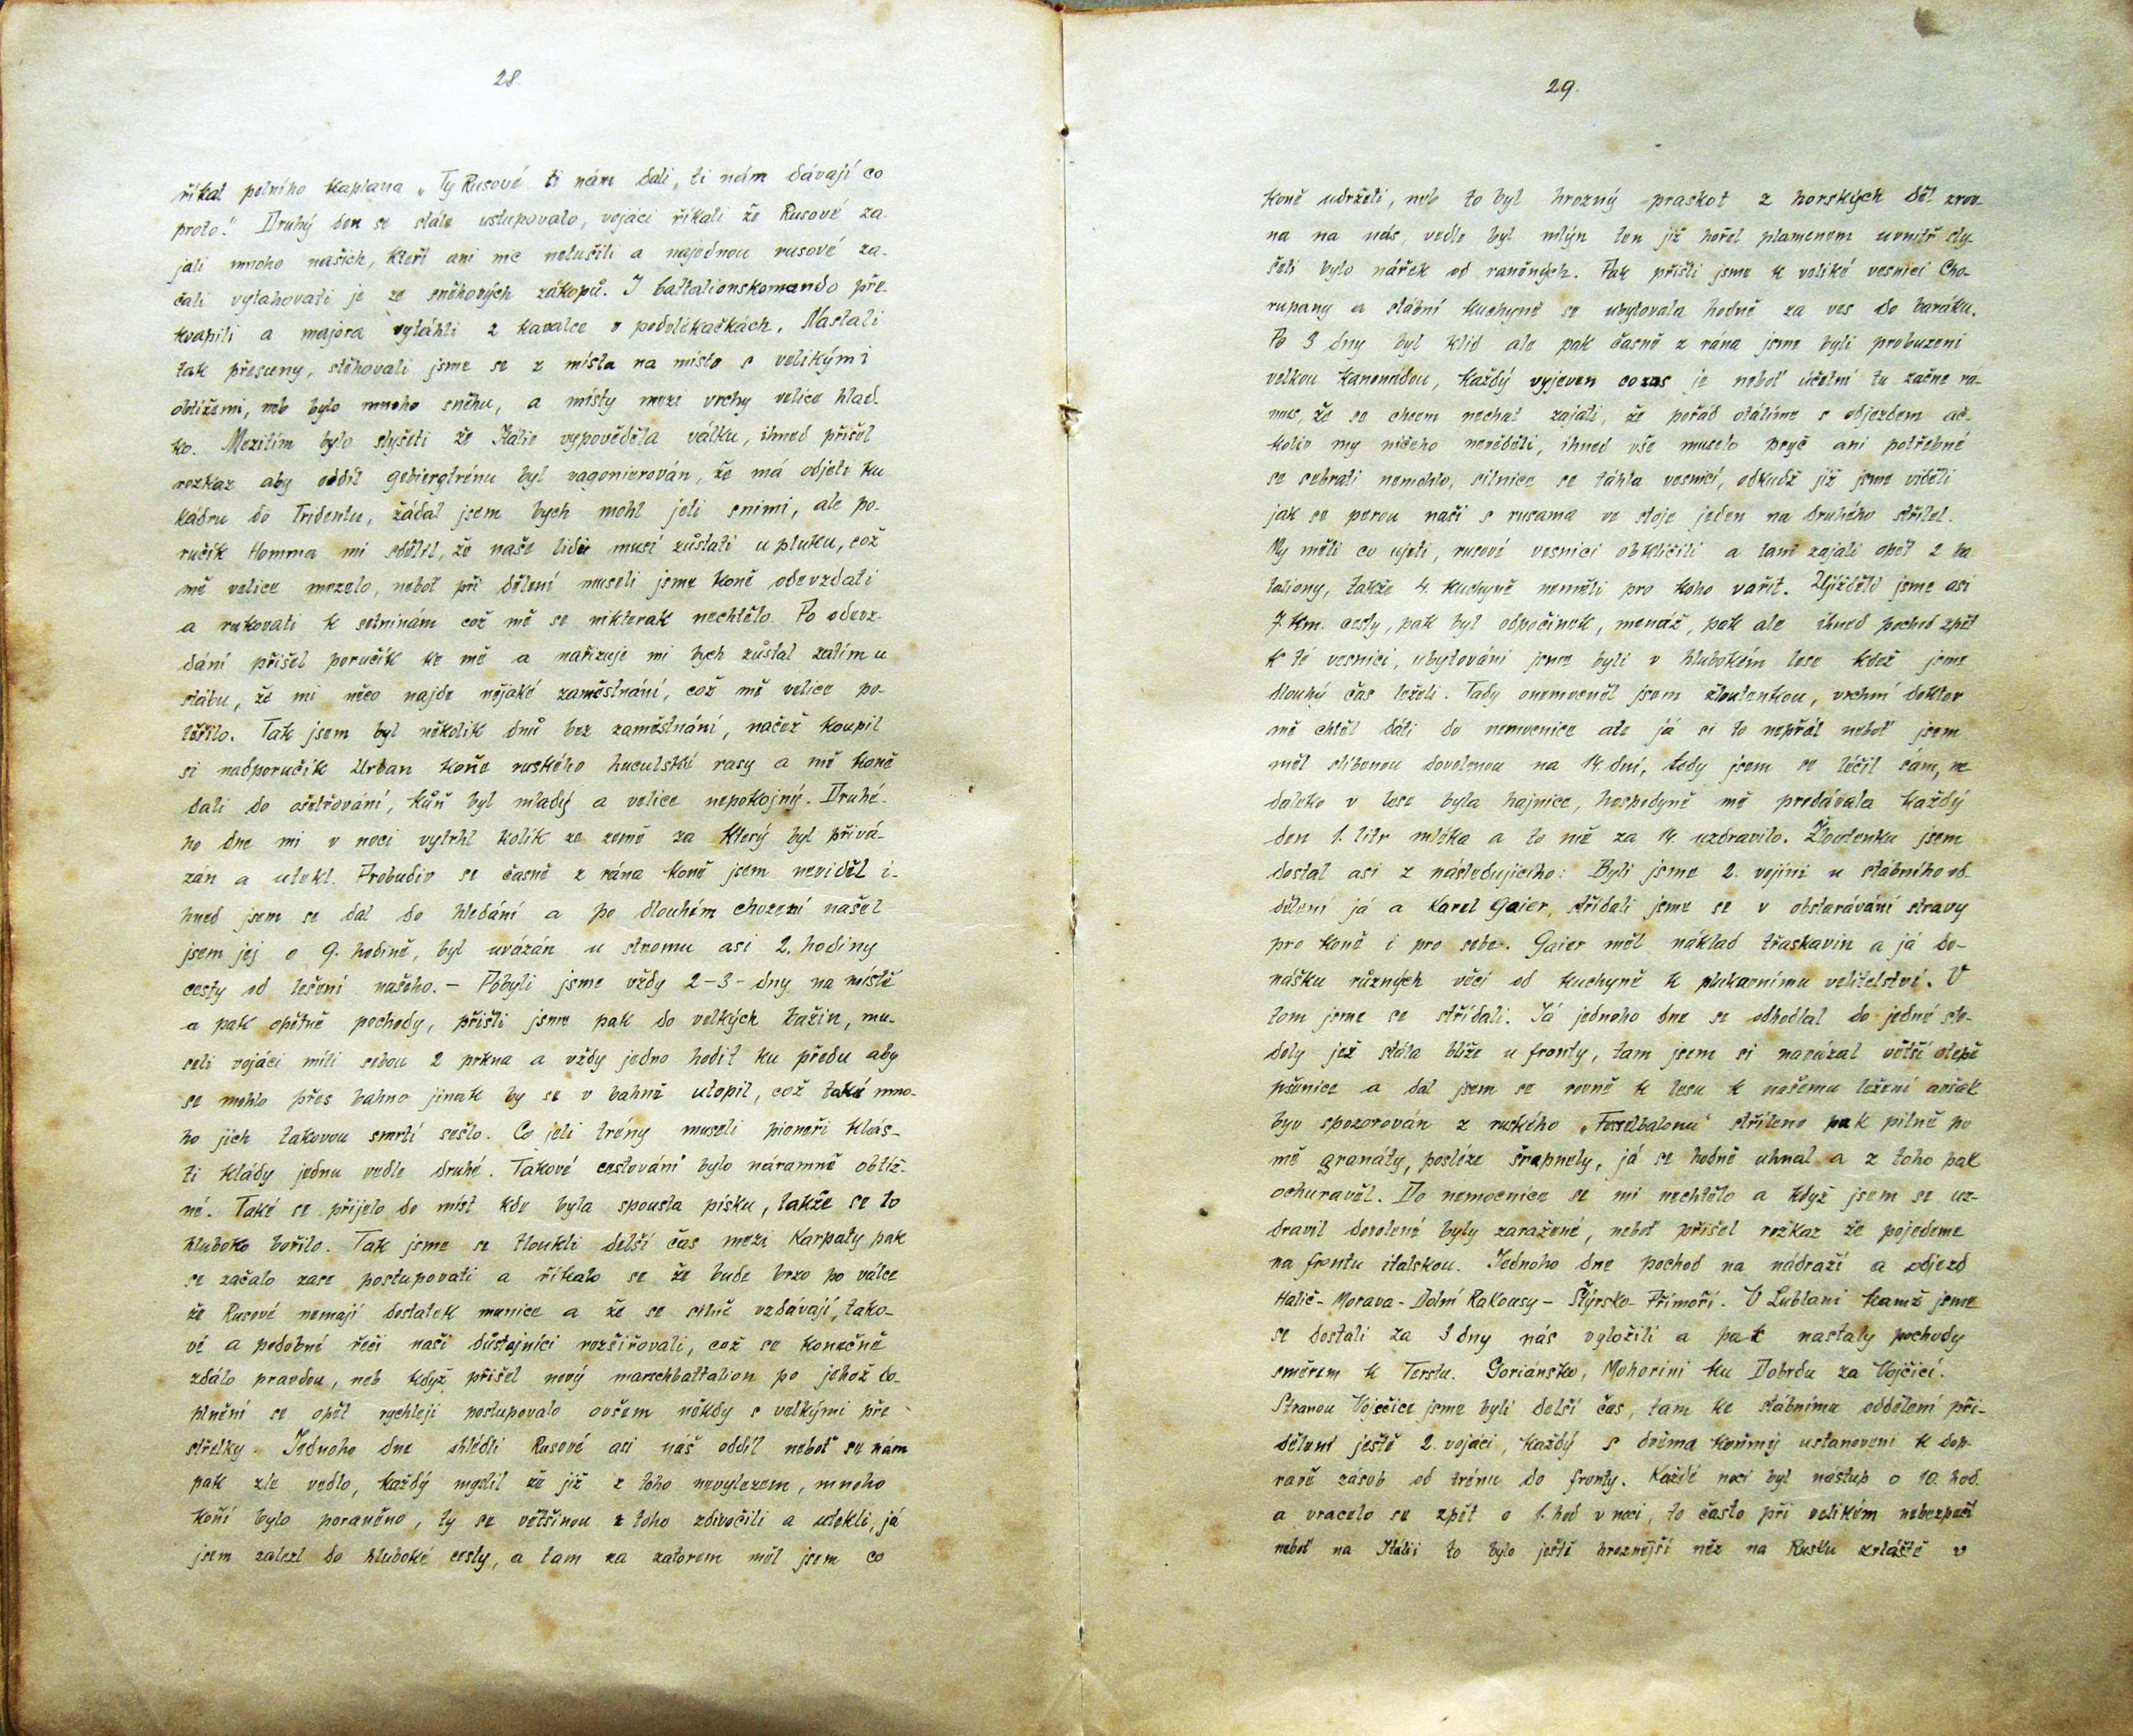 28.
říkal polního kaplana „Ty Rusové ti nám dali, ti nám dávají co
proto!" Druhý den se stále ustupovalo, vojáci říkali že Rusové za-
jali mnoho našich, kteří ani nic netušili a najednou rusové za-
čali vytahovati je ze sněhových zákopů. I battalionskomando pře-
kvapili a majora vytáhli z kavalce v podvlékačkách. Nastali
tak přesuny, stěhovali jsme se z místa na místo s velikými
obtížemi, neb bylo mnoho sněhu, a místy mezi vrchy velice hlad-
ko. Mezitím bylo slyšeti že Italie vypověděla válku, ihned přišel
rozkaz aby oddíl gebiergtrénu byl vagonierován, že má odjeti ku
kádru do Tridentu, žádal jsem bych mohl jeti snimi, ale po-
ručík Homma mi sdělil, že naše lidi musí zůstati u pluku, což
mě velice mrzelo, neboť při dělení museli jsme koně odevzdati
a rukovati k setninám což mě se nikterak nechtělo. Po odevz-
dání přišel poručík ke mě a nařizuje mi bych zůstal zatím u
štábu, že mi něco najde nějaké zaměstnání, což mě velice po-
těšilo. Tak jsem byl několik dnů bez zaměstnání, načež koupil
si nadporučík Urban koně ruského huculské rasy a mě koně
dali do ošetřování, kůň byl mladý a velice nepokojný. Druhé-
ho dne mi v noci vytrhl kolík ze země za který byl přivá-
zán a utekl. Probudiv se časně z rána koně jsem neviděl i-
hned jsem se dal do hledání a po dlouhém chození našel
jsem jej o 9. hodině, byl uvázán u stromu asi 2. hodiny
cesty od ležení našeho. — Pobyli jsme vždy 2-3- dny na místě
a pak opětně pochody, přišli jsme pak do velkých bažin, mu-
seli vojáci míti sebou 2 prkna a vždy jedno hodit ku předu aby
se mohlo přes bahno jinak by se v bahně utopil, což také mno-
ho jich takovou smrtí sešlo. Co jeli trény museli pioneři klás-
ti klády jednu vedle druhé. Takové cestování bylo náramně obtíž-
né. Také se přijelo do míst kde byla spousta písku, takže se to
hluboko bořilo. Tak jsme se tloukli delší čas mezi Karpaty pak
se začalo zase postupovati a říkalo se že bude brzo po válce
že Rusové nemají dostatek munice a že se silně vzdávají, tako-
vé a podobné řeči naši důstojníci rozšiřovali, což se konečně
zdálo pravdou, neb když přišel nový marschbattalion po jehož do-
plnění se opět rychleji postupovalo ovšem někdy s velkými pře-
střelky. Jednoho dne shlédli Rusové asi náš oddíl neboť se nám
pak zle vedlo, každý myslil že již z toho nevylezem, mnoho
koní bylo poraněno, ty se většinou z toho zdivočili a utekli, já
jsem zalezl do hluboké cesty, a tam za zatorem měl jsem co
29.
koně udržeti, neb to byl hrozný praskot z horských děl zrov-
na na nás, vedle byl mlýn ten již hořel plamenem uvnitř sly-
šeti bylo nářek od raněných. Pak přišli jsme k veliké vesnici Cho-
rupany a stábní kuchyně se ubytovala hodně za ves do baráku.
Po 3 dny byl klid ale pak časně z rána jsme byli probuzeni
velkou kanonádou, každý vyjeven cozas je neboť účetní tu začne na-
mus, že se chcem nechat zajati, že pořád otálíme s odjezdem ač-
koliv my ničeho nevěděli, ihned vše muselo pryč ani potřebné
se sebrati nemohlo, silnice se táhla vesnicí, odkudž již jsme viděli
jak se perou naši s rusama ve stoje jeden na druhého střílel.
My měli co ujeti, rusové vesnici obklíčili a tam zajali opět 2 ba-
taliony, takže 4. kuchyně neměli pro koho vařit. Ujížděli jsme asi
7. km. cesty, pak byl odpočinek, menáž, pak ale ihned pochod zpět
k té vesnici, ubytováni jsme byli v hlubokém lese kdež jsme
dlouhý čas leželi. Tady onemocněl jsem žloutenkou, vrchní doktor
mě chtěl dáti do nemocnice ale já si to nepřál neboť jsem
měl slíbenou dovolenou na 14. dní, tedy jsem se léčil sám, ne
daleko v lese byla hajnice, hospodyně mě prodávala každý
den 1. litr mléka a to mě za 14. uzdravilo. Žloutenku jsem
dostal asi z následujícího: Byli jsme 2. vojíni u stábního od-
dělení já a Karel Gaier, střídali jsme se v obstarávání stravy
pro koně i pro sebe. Gaier měl náklad třaskavin a já do-
nášku různých věcí od kuchyně k plukovnímu velitelství. V
tom jsme se střídali. Já jednoho dne se odhodlal do jedné sto-
doly jež stála blíže u fronty, tam jsem si navázal větší otepě
pšenice a dal jsem se rovně k lesu k našemu ležení avšak
byv spozorován z ruského „Fesselbalonu" stříleno pak pilně po
mě granáty, posléze šrapnely, já se hodně uhnal a z toho pak
ochuravěl. Do nemocnice se mi nechtělo a když jsem se uz-
dravil dovolené byly zaražené, neboť přišel rozkaz že pojedeme
na frontu italskou. Jednoho dne pochod na nádraží a odjezd
Halič- Morava- Dolní Rakousy- Štýrsko- Přímoří. V Lublani kamž jsme
se dostali za 3 dny nás vyložili a pak nastaly pochody
směrem k Terstu. Goriánsko, Mohorini ku Dobrdu za Vojčicí.
Stranou Voješčice jsme byli delší čas, tam ke stábnímu oddělení při-
děleni ještě 2. vojáci, každý s dvěma koňmy ustanoveni k dop-
ravě zásob od trénu do fronty. Každé noci byl nástup o 10. hod.
a vracelo se zpět o 1. hod v noci, to často při velikém nebezpečí
neboť na Itálii to bylo ještě hroznější než na Rusku zvláště v